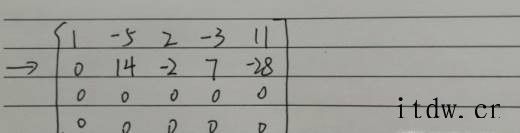 1 -5 2 -3 11
→ 0 14 -2 7 -28
0 0 0 0 0
0 0 0 0 0
itdw.cr